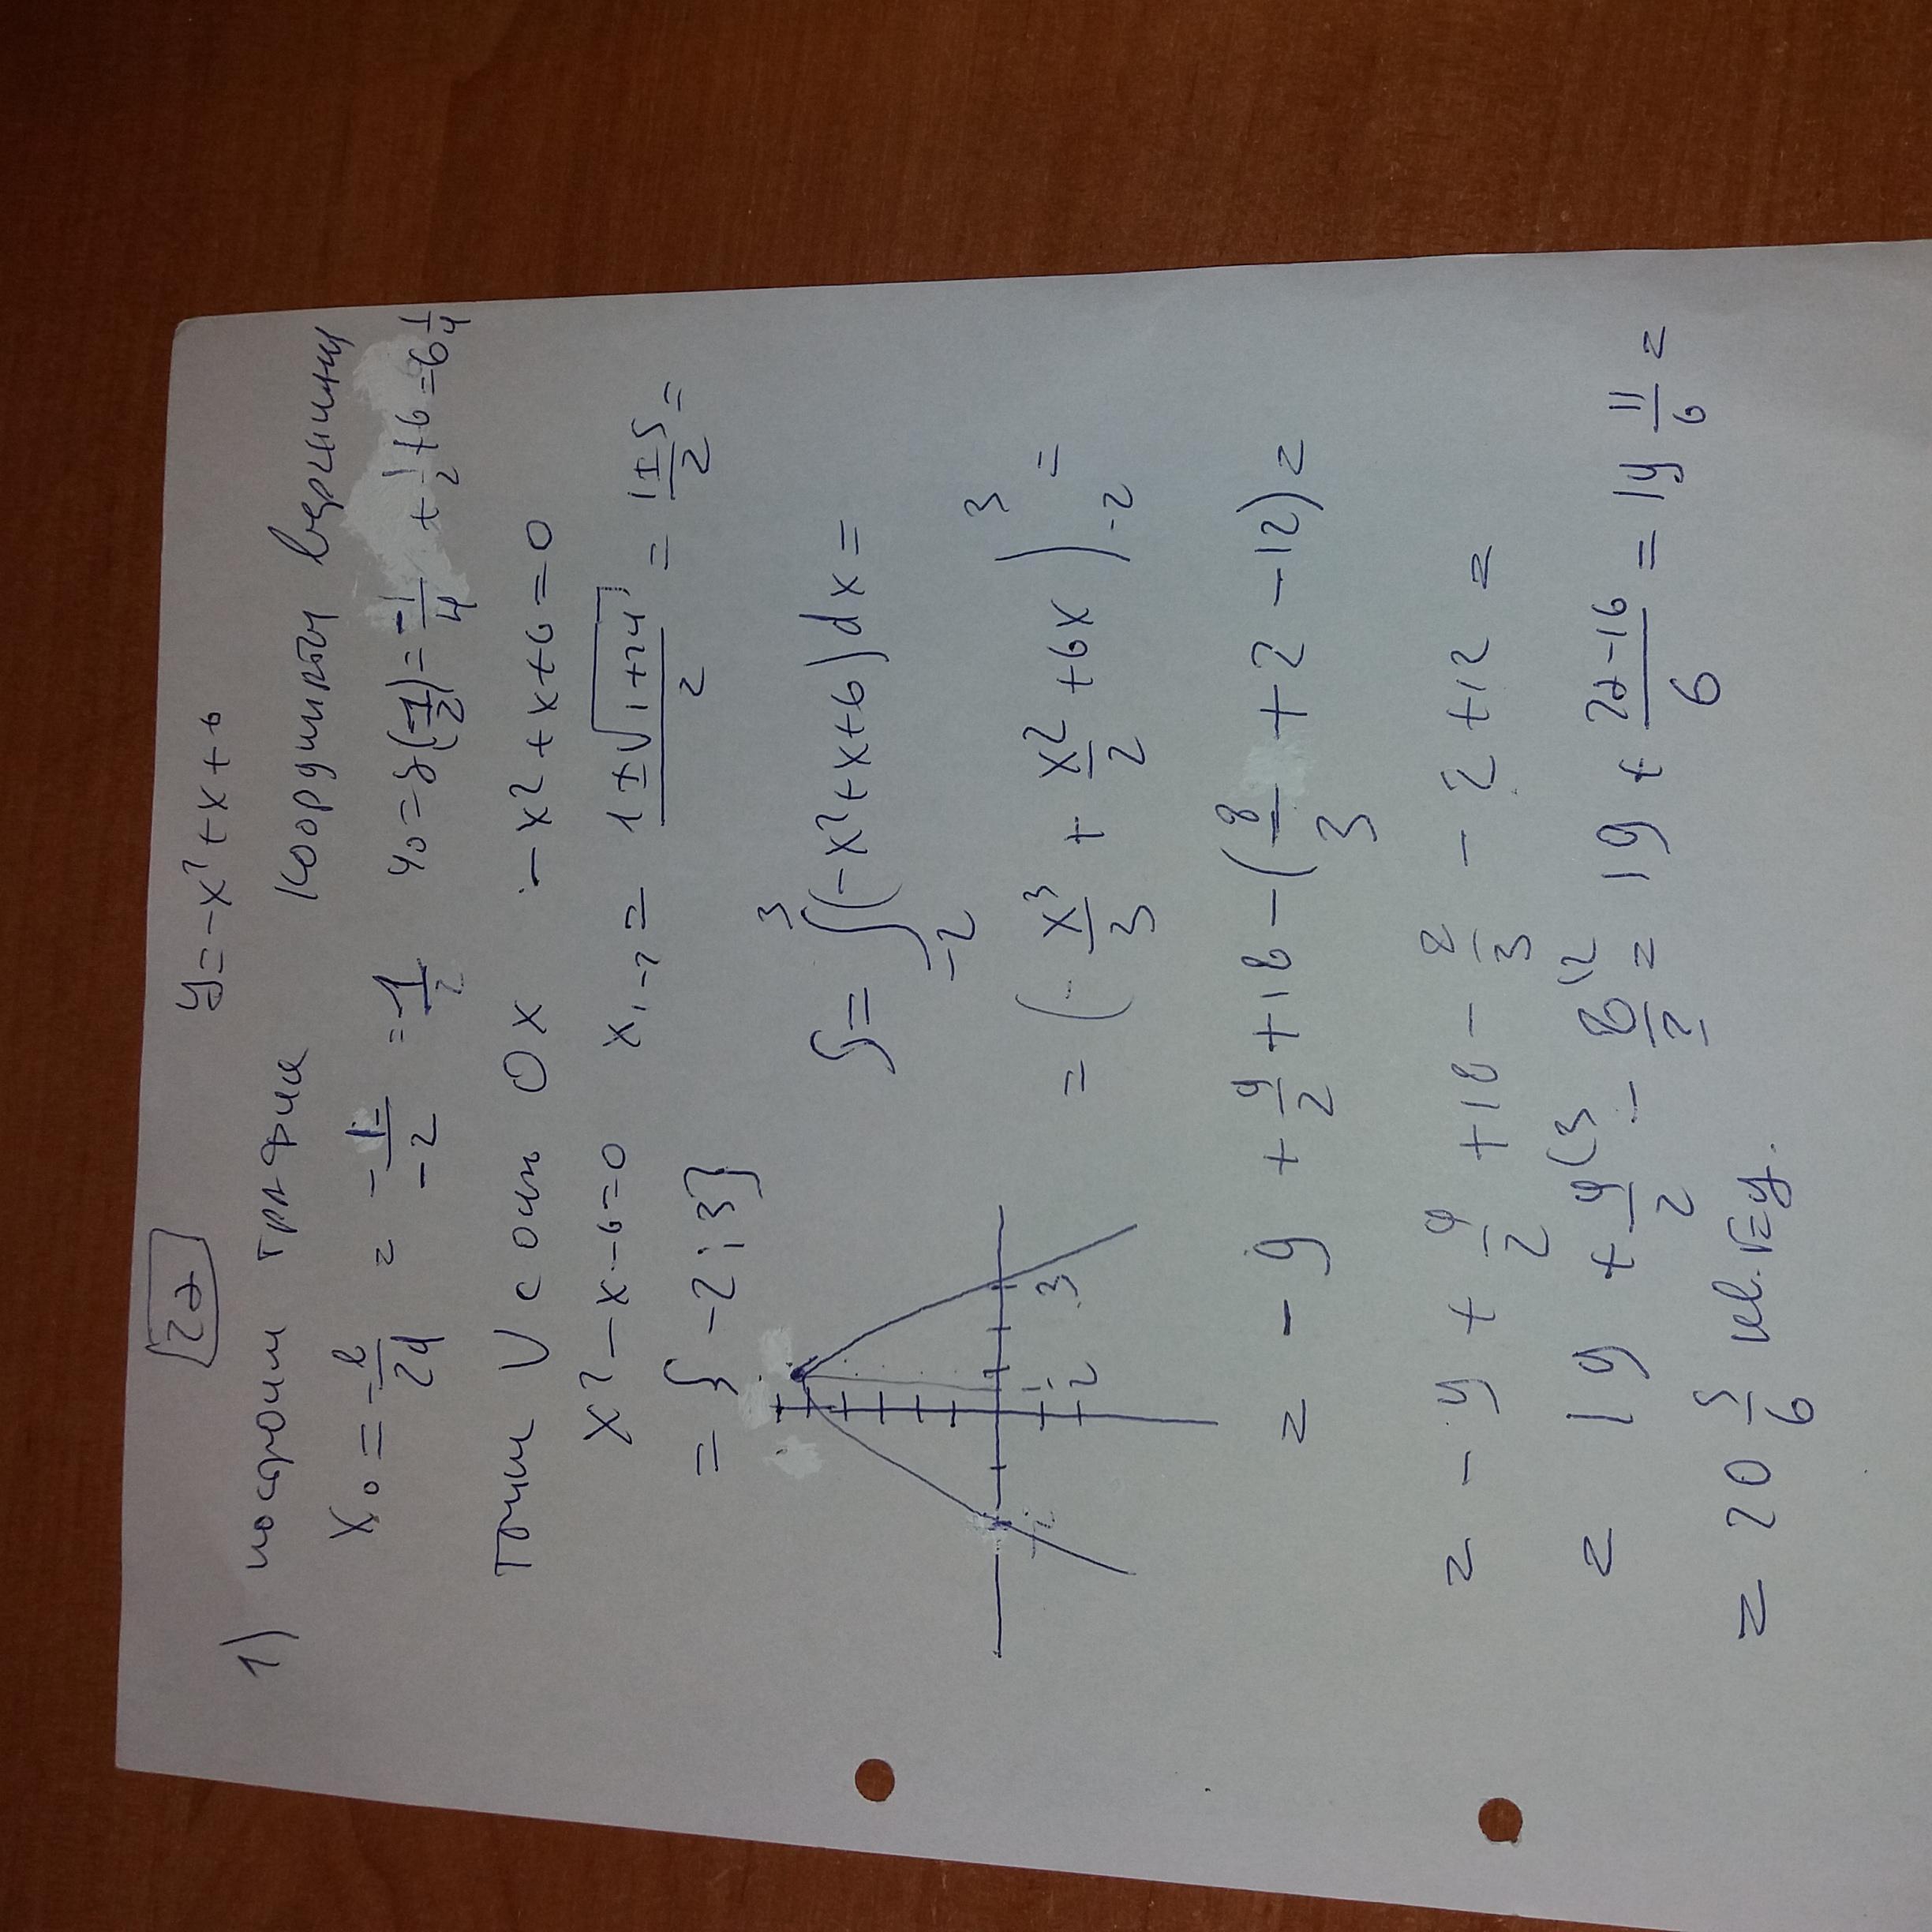 2a
y = -x² + x + 6
1) построим график координаты вершины
x₀ = -b/2a = -1/-2 = 1/2 y₀ = y(1/2) = -1/4 + 1/2 + 6 = 6 1/4
Точки ∪ с осью OX -x² + x + 6 = 0
x² - x - 6 = 0 x₁,₂ = (1 ± √(1 + 24))/2 = (1 ± 5)/2 =
= {-2; 3}
S = ∫₋₂³ (-x² + x + 6) dx =
= (-x³/3 + x²/2 + 6x)₋₂³ =
-2 1 2 3
= -9 + 9/2 + 18 - (8/3 + 2 - 12) =
= -9 + 9/2 + 18 - 8/3 - 2 + 12 =
= 19 + 9/2 (3 - 8/3 (2 = 19 + (27 - 16)/6 = 19 11/6 =
= 20 5/6 кв. ед.